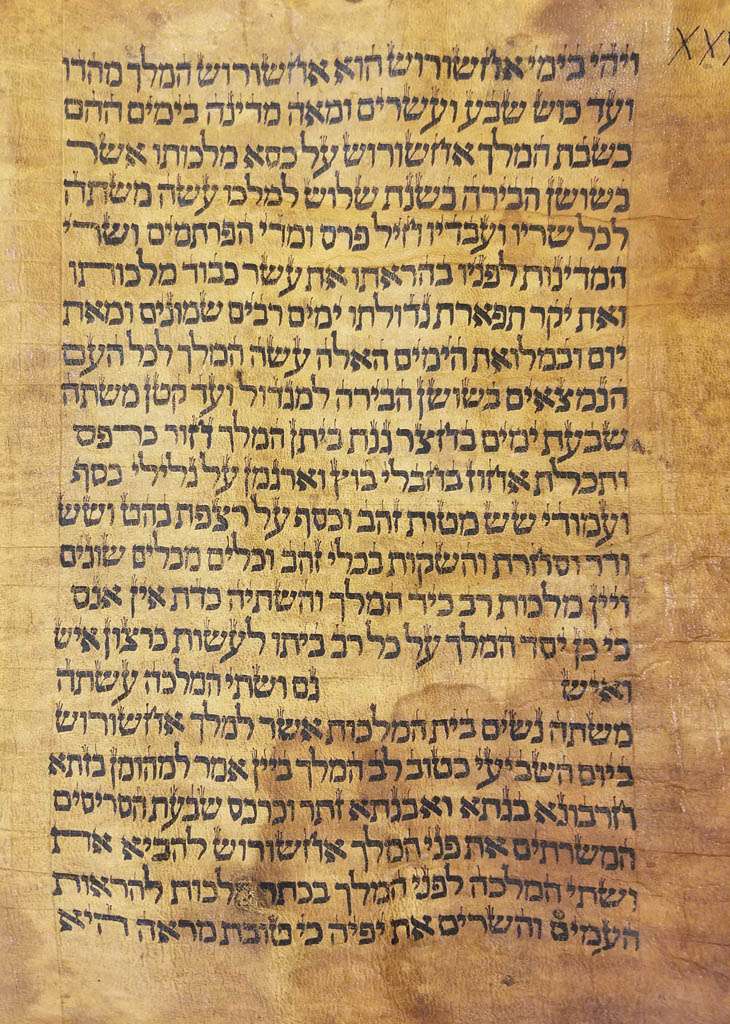 XXX
ויהי בימי אחשורוש הוא אחשורוש המלך מהדו
ועד כוש שבע ועשרים ומאה מדינה בימים ההם
כשבת המלך אחשורוש על כסא מלכותו אשר
בשושן הבירה בשנת שלוש למלכו עשה משתה
לכל שריו ועבדיו חיל פרס ומדי הפרתמים ושרי
המדינות לפניו בהראתו את עשר כבוד מלכותו
ואת יקר תפארת גדולתו ימים רבים שמונים ומאת
יום ובמלואת הימים האלה עשה המלך לכל העם
הנמצאים בשושן הבירה למגדול ועד קטן משתה
שבעת ימים בחצר גנת ביתן המלך חור כרפס
ותכלת אחוז בחבלי בוץ וארגמן על גלילי כסף
ועמודי שש מטות זהב וכסף על רצפת בהט ושש
ודר וסחרת והשקות בכלי זהב וכלים מכלים שונים
ויין מלכות רב כיד המלך והשתיה כדת אין אנס
כי כן יסד המלך על כל רב ביתו לעשות כרצון איש
ואיש גם ושתי המלכה עשתה
משתה נשים בית המלכות אשר למלך אחשורוש
ביום השביעי כטוב לב המלך ביין אמר למהומן בזתא
חרבונא בגתא ואבגתא זתר וכרכס שבעת הסריסים
המשרתים את פני המלך אחשורוש להביא את
ושתי המלכה לפני המלך בכתר מלכות להראות
העמים והשרים את יפיה כי טובת מראה היא